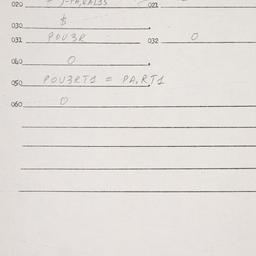 020 021
030 $
031 POU3R 032 0
040 0
050 POU3RT1 = PA,RT1
060 0